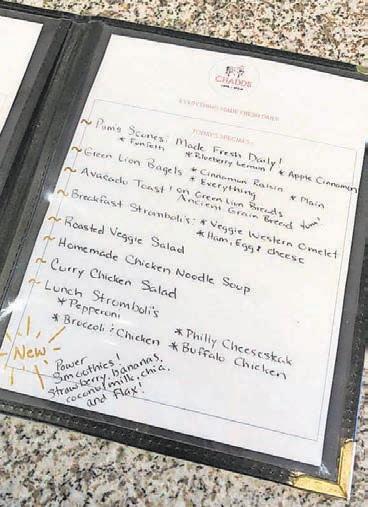 CHADDS
EVERYTHING MADE FRESH DAILY
TODAY'S SPECIALS
~ Pam's Scones: Made Fresh Daily!
* Funfetti * Blueberry Lemon * Apple Cinnamon
~ Green Lion Bagels * Cinnamon Raisin * Plain
* Everything
~ Avacado Toast! on Green Lion Breads
Ancient Grain Bread Yum!
~ Breakfast Stromboli's: * Veggie Western Omelet
* Ham, Egg & cheese
~ Roasted Veggie Salad
~ Homemade Chicken Noodle Soup
~ Curry Chicken Salad
~ Lunch Stromboli's
* Pepperoni * Philly Cheesesteak
* Broccoli & Chicken * Buffalo Chicken
New
Power
Smoothies!
Strawberry, bananas,
coconut milk, chia,
and flax!